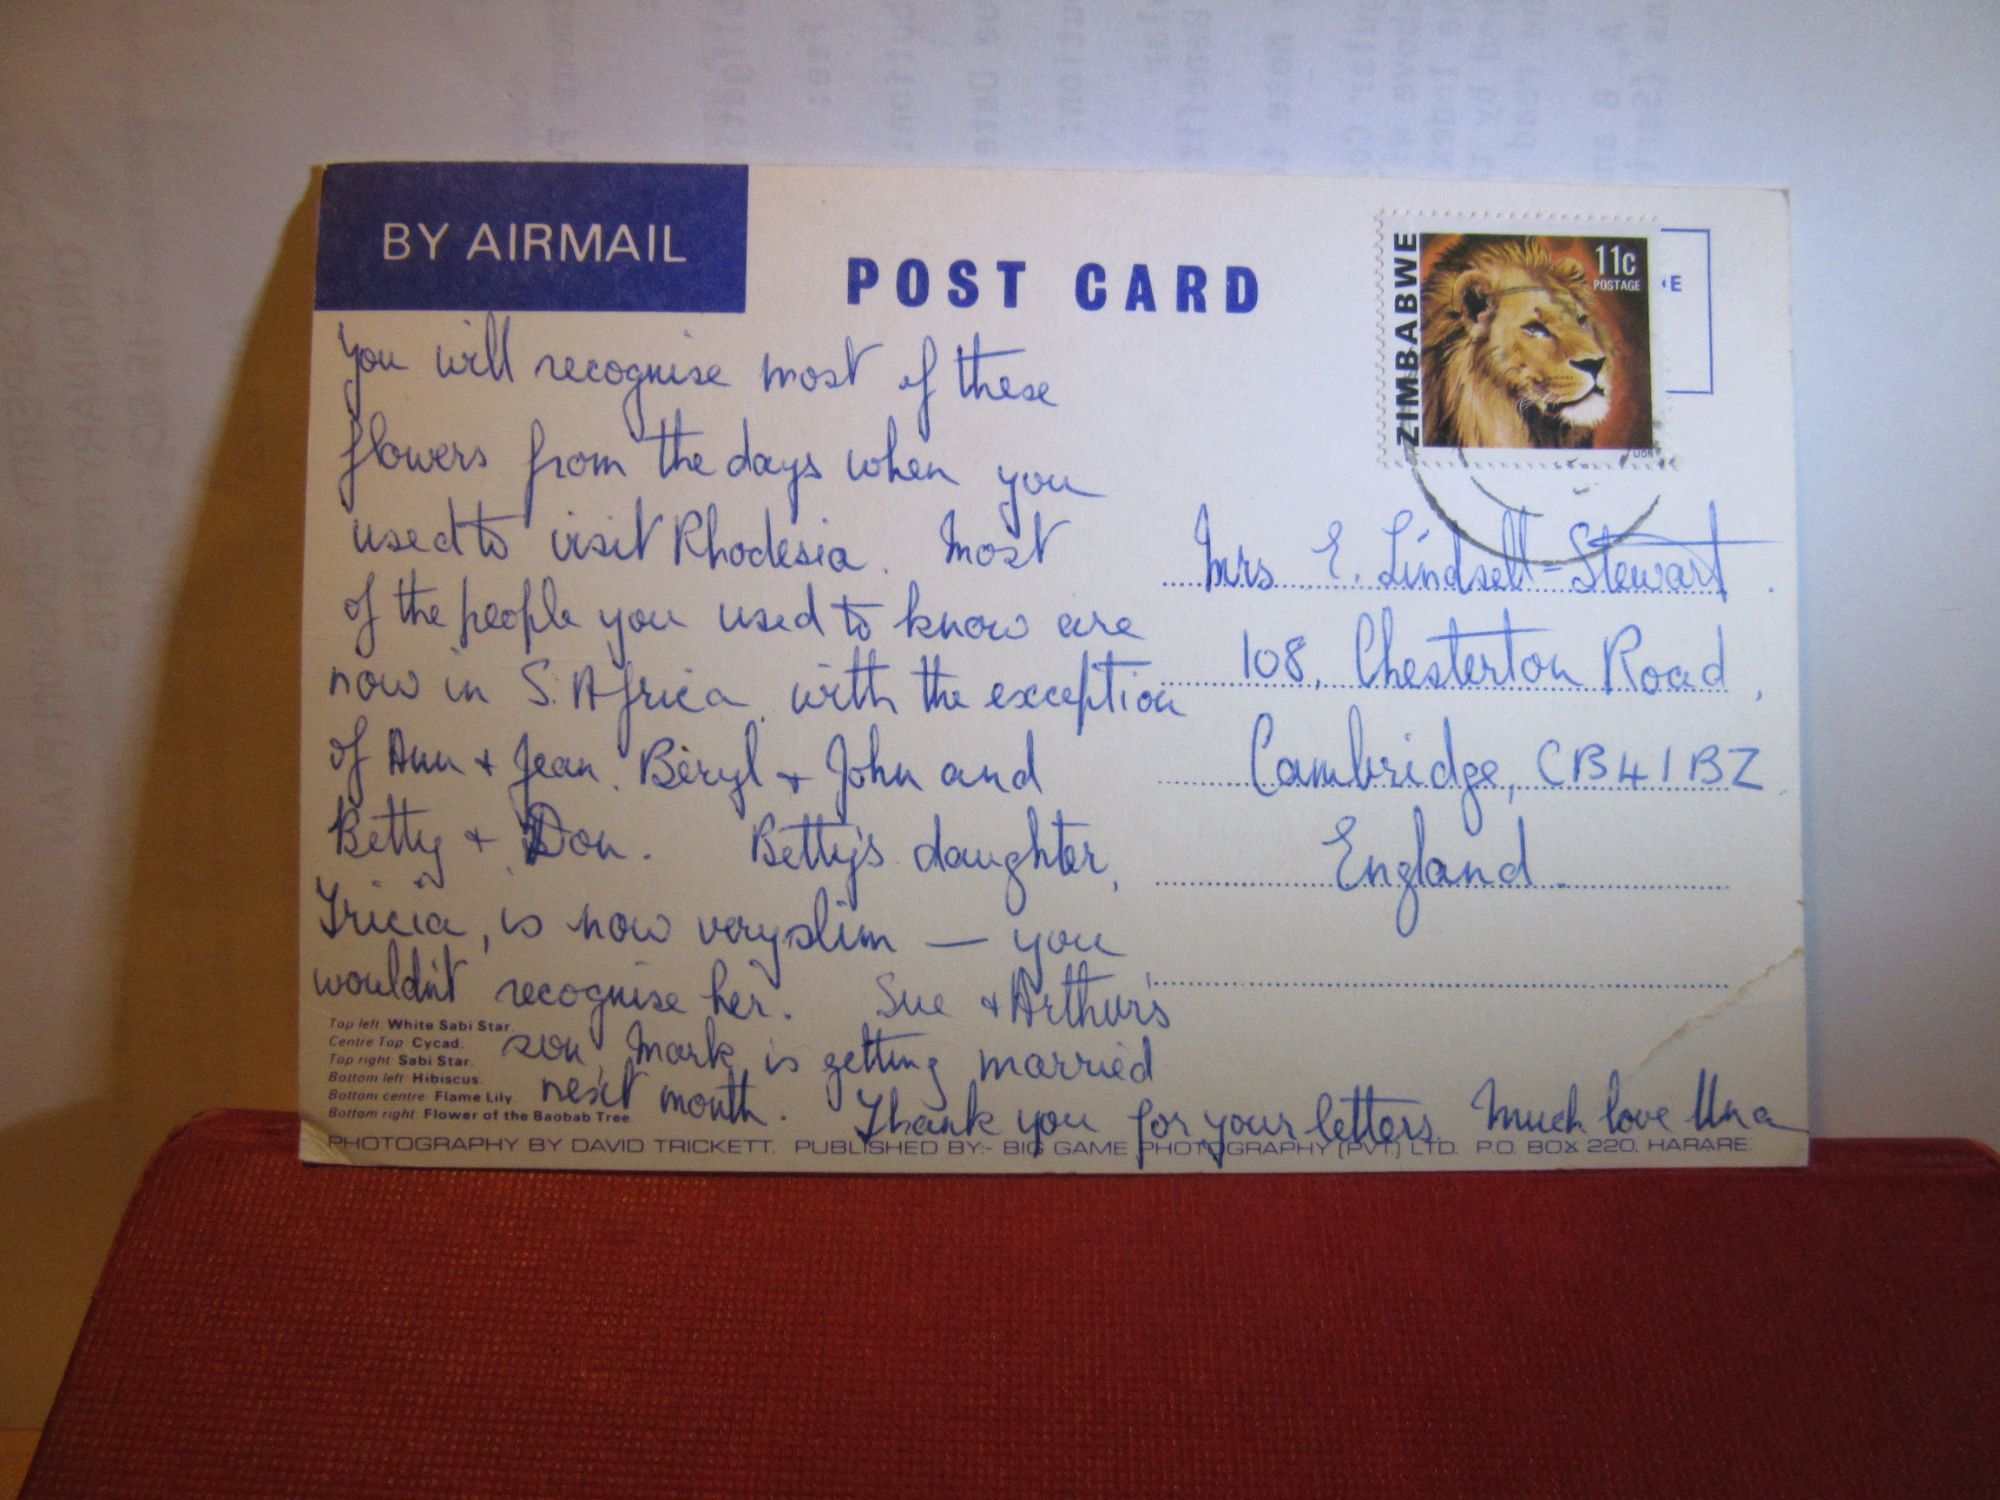 BY AIRMAIL
POST CARD
ZIMBABWE
11c
POSTAGE
LION
You will recognise most of these
flowers from the days when you
used to visit Rhodesia. Most
of the people you used to know are
now in S. Africa, with the exception
of Ann + Jean, Beryl + John and
Betty + Don. Betty's daughter,
Tricia, is now very slim — you
wouldn't recognise her. Sue + Arthur's
son, Mark, is getting married
next month. Thank you for your letters. Much love Una
Mrs E. Lindsell-Stewart.
108, Chesterton Road,
Cambridge, CB4 1BZ
England.
Top left: White Sabi Star.
Centre Top: Cycad.
Top right: Sabi Star.
Bottom left: Hibiscus.
Bottom centre: Flame Lily.
Bottom right: Flower of the Baobab Tree.
PHOTOGRAPHY BY DAVID TRICKETT. PUBLISHED BY:- BIG GAME PHOTOGRAPHY (PVT) LTD. P.O. BOX 220, HARARE.